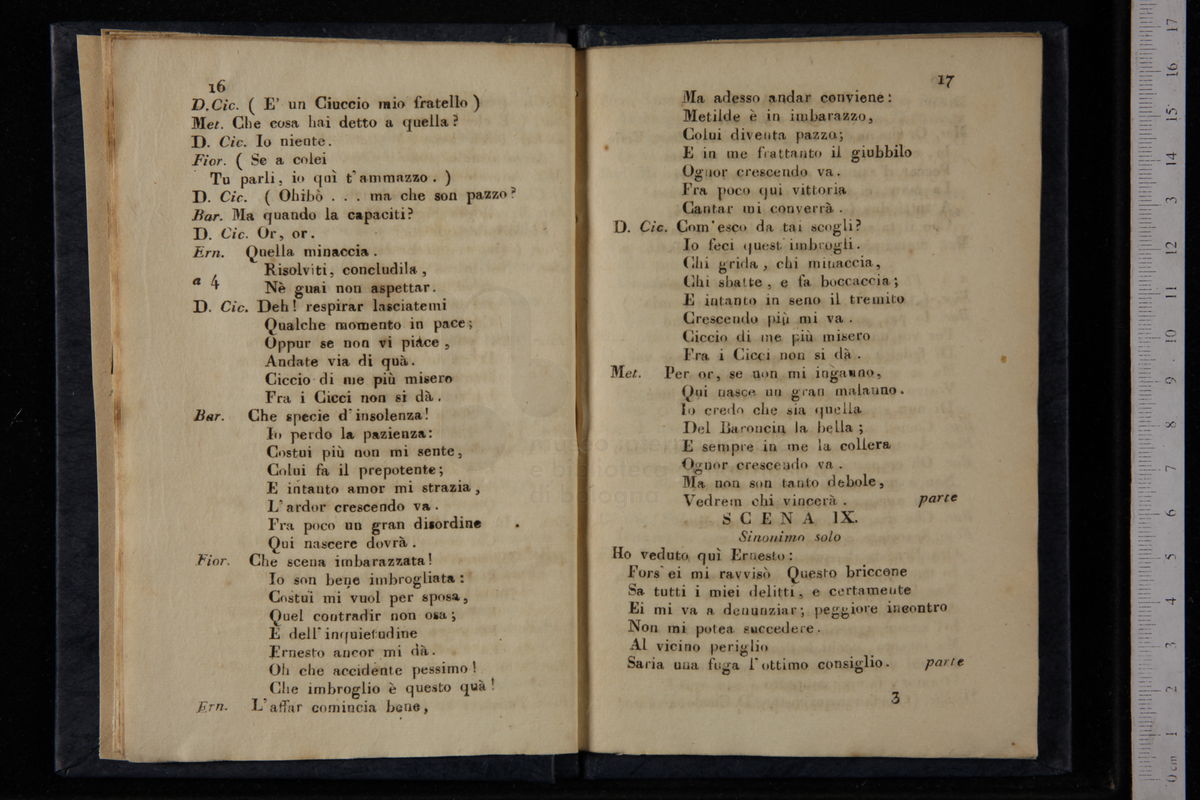 16
D.Cic. ( E' un Ciuccio mio fratello )
Met. Che cosa hai detto a quella?
D. Cic. Io niente.
Fior. ( Se a colei
Tu parli, io quì t'ammazzo. )
D. Cic. ( Ohibò . . . ma che son pazzo?
Bar. Ma quando la capaciti?
D. Cic. Or, or.
Ern. Quella minaccia.
Risolviti, concludila,
a 4 Nè guai non aspettar.
D. Cic. Deh! respirar lasciatemi
Qualche momento in pace;
Oppur se non vi piace,
Andate via di quà.
Ciccio di me più misero
Fra i Cicci non si dà.
Bar. Che specie d'insolenza!
Io perdo la pazienza:
Costui più non mi sente,
Colui fa il prepotente;
E intanto amor mi strazia,
L'ardor crescendo va.
Fra poco un gran disordine
Qui nascere dovrà.
Fior. Che scena imbarazzata!
Io son bene imbrogliata:
Costui mi vuol per sposa,
Quel contradir non osa;
E dell'inquietudine
Ernesto ancor mi dà.
Oh che accidente pessimo!
Che imbroglio è questo quà!
Ern. L'affar comincia bene,
17
Ma adesso andar conviene:
Metilde è in imbarazzo,
Colui diventa pazzo;
E in me frattanto il giubbilo
Ognor crescendo va.
Fra poco qui vittoria
Cantar mi converrà.
D. Cic. Com'esco da tai scogli?
Io feci quest'imbrogli.
Chi grida, chi minaccia,
Chi sbatte, e fa boccaccia;
E intanto in seno il tremito
Crescendo più mi va.
Ciccio di me più misero
Fra i Cicci non si dà.
Met. Per or, se non mi inganno,
Qui nasce un gran malanno.
Io credo che sia quella
Del Baroncin la bella;
E sempre in me la collera
Ognor crescendo va.
Ma non son tanto debole,
Vedrem chi vincerà. parte
SCENA IX.
Sinonimo solo
Ho veduto quì Ernesto:
Fors'ei mi ravvisò Questo briccone
Sa tutti i miei delitti, e certamente
Ei mi va a denunziar; peggiore incontro
Non mi potea succedere.
Al vicino periglio
Saria una fuga l'ottimo consiglio. parte
3